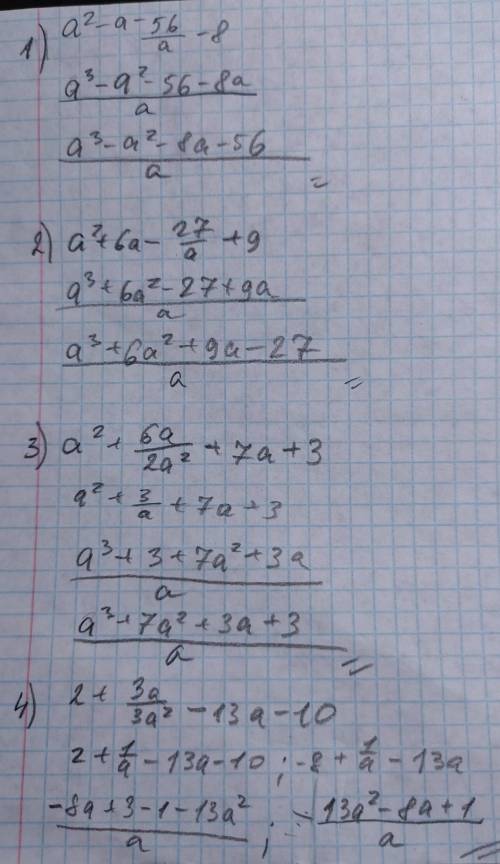 1) a² - a - 56/a - 8
a³ - a² - 56 - 8a / a
a³ - a² - 8a - 56 / a
2) a² + 6a - 27/a + 9
a³ + 6a² - 27 + 9a / a
a³ + 6a² + 9a - 27 / a
3) a² + 6a/2a² + 7a + 3
a² + 3/a + 7a + 3
a³ + 3 + 7a² + 3a / a
a³ + 7a² + 3a + 3 / a
4) 2 + 3a/3a² - 13a - 10
2 + 1/a - 13a - 10 ; -8 + 1/a - 13a
-8a + 3 - 1 - 13a² / a ; - 13a² - 8a + 1 / a